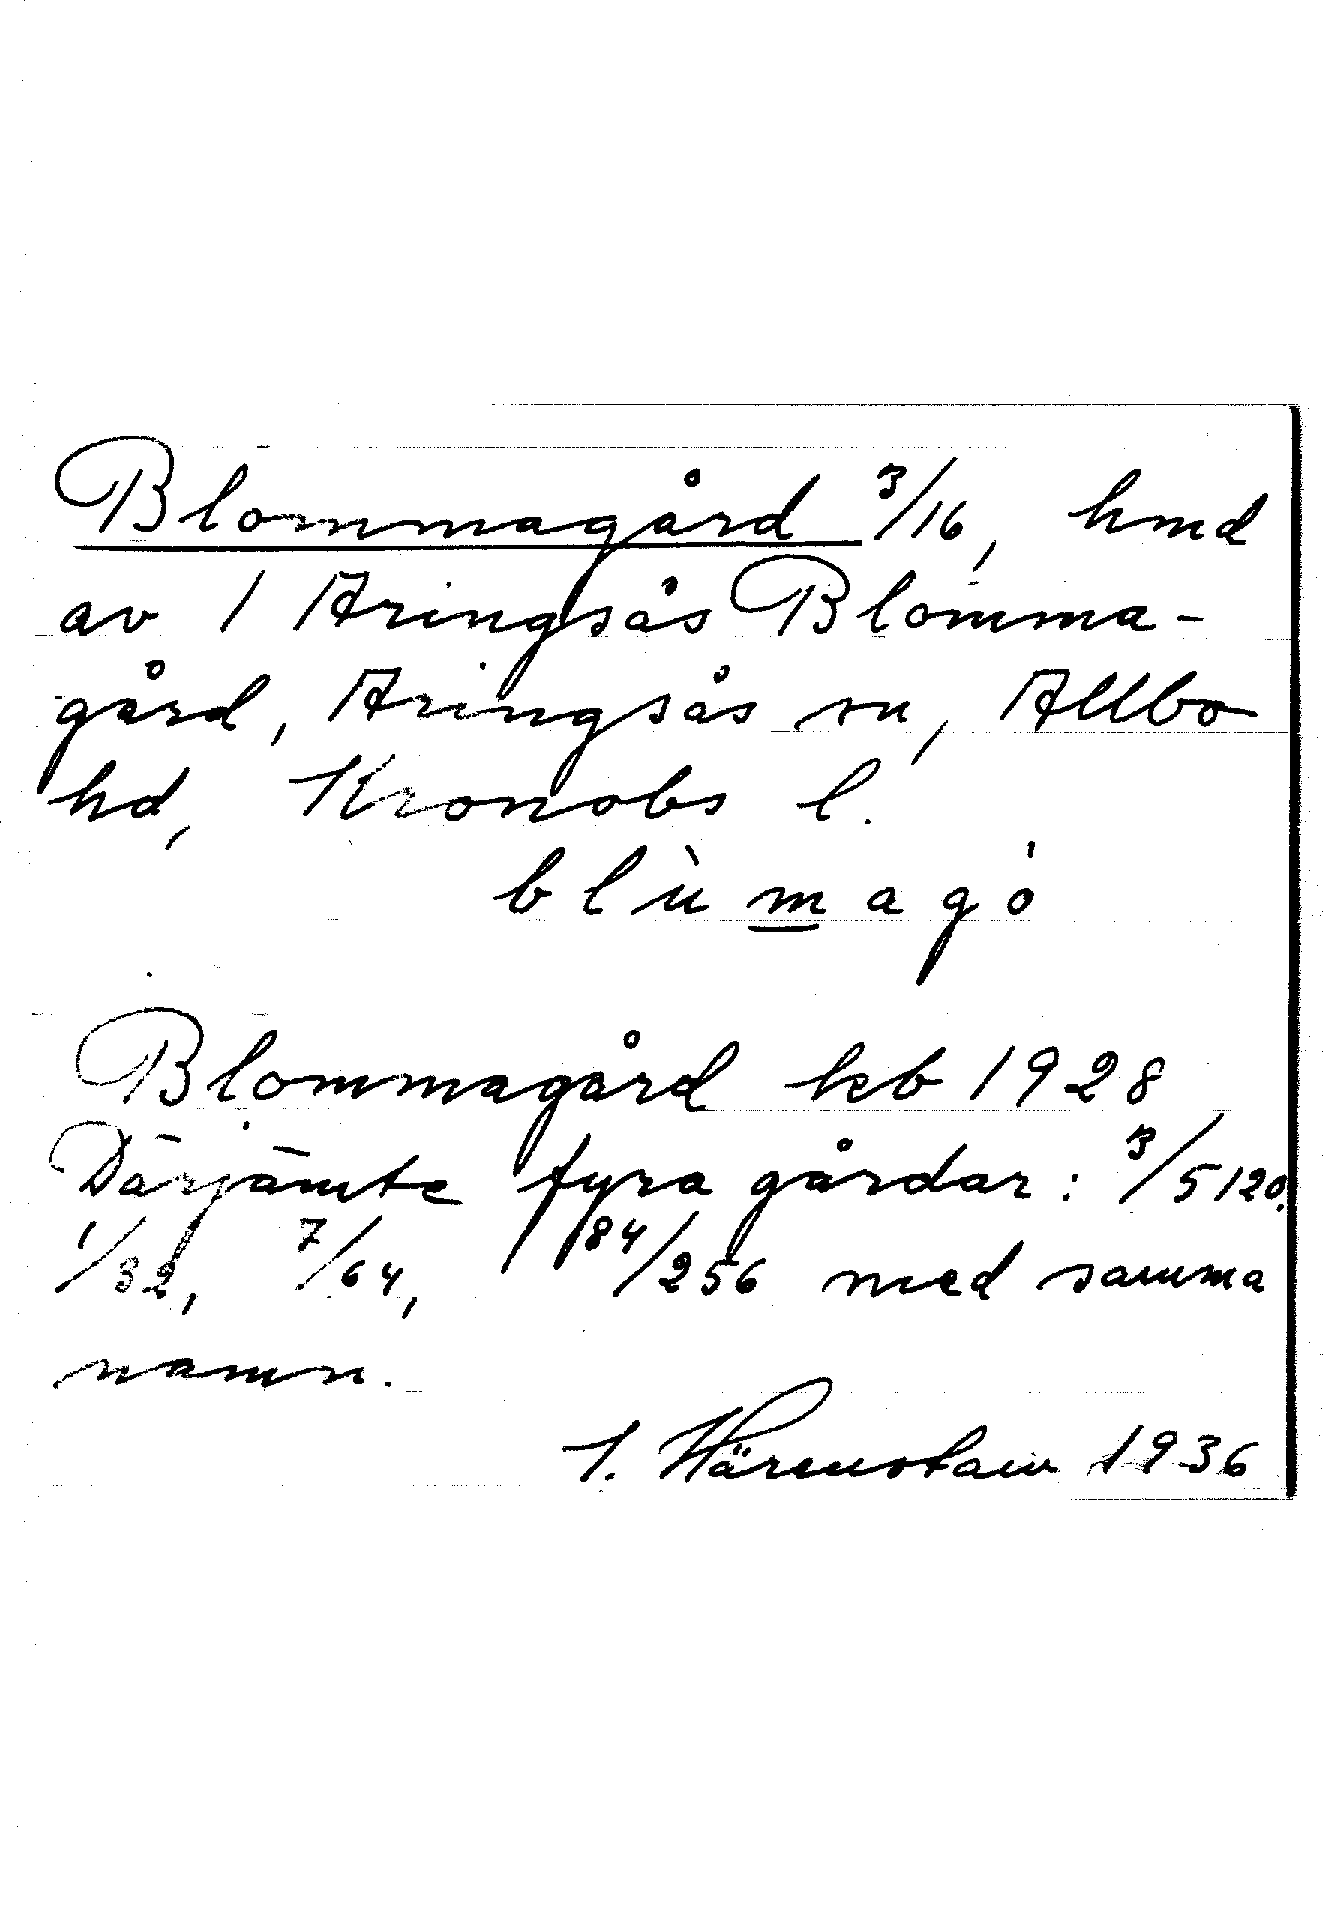 Blommagård 3/16, hmd
av 1 Aringsås Blomma-
gård, Aringsås sn, Allbo
hd, Kronobs l.
blùmagó
Blommagård kb 1928
Därjämte fyra gårdar: 3/5120,
1/32, 7/64, 84/256 med samma
namn.
I. Härenstam 1936